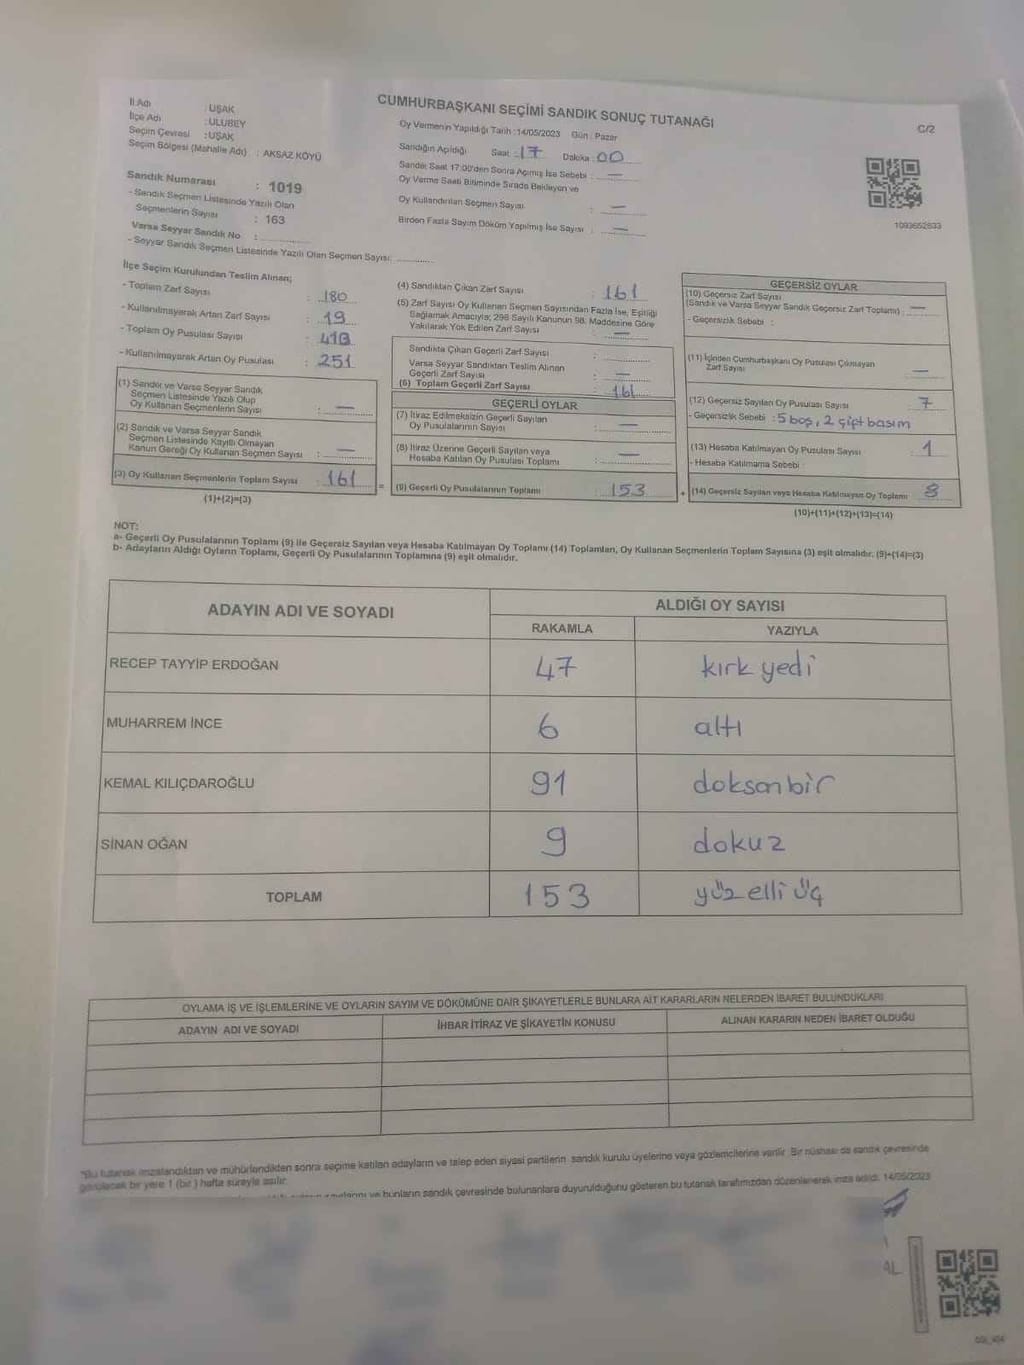 CUMHURBAŞKANI SEÇİMİ SANDIK SONUÇ TUTANAĞI
C/2
İl Adı : UŞAK
İlçe Adı : ULUBEY
Seçim Çevresi : UŞAK
Seçim Bölgesi (Mahalle Adı) : AKSAZ KÖYÜ
Sandık Numarası : 1019
- Sandık Seçmen Listesinde Yazılı Olan
Seçmenlerin Sayısı : 163
Varsa Seyyar Sandık No :
- Seyyar Sandık Seçmen Listesinde Yazılı Olan Seçmen Sayısı:
Oy Vermenin Yapıldığı Tarih :14/05/2023 Gün : Pazar
Sandığın Açıldığı Saat : 17 Dakika : 00
Sandık Saat 17:00'den Sonra Açımış İse Sebebi : —
Oy Verme Saati Bitiminde Sırada Bekleyen ve
Oy Kullandırılan Seçmen Sayısı : —
Birden Fazla Sayım Döküm Yapılmış İse Sayısı : —
1093652633
İlçe Seçim Kurulundan Teslim Alınan;
- Toplam Zarf Sayısı : 180
- Kullanılmayarak Artan Zarf Sayısı : 19
- Toplam Oy Pusulası Sayısı :
- Kullanılmayarak Artan Oy Pusulası : 251
(1) Sandık ve Varsa Seyyar Sandık
Seçmen Listesinde Yazılı Olup
Oy Kullanan Seçmenlerin Sayısı : —
(2) Sandık ve Varsa Seyyar Sandık
Seçmen Listesinde Kayıtlı Olmayan
Kanun Gereği Oy Kullanan Seçmen Sayısı : —
(3) Oy Kullanan Seçmenlerin Toplam Sayısı : 161
(1)+(2)=(3)
(4) Sandıktan Çıkan Zarf Sayısı : 161
(5) Zarf Sayısı Oy Kullanan Seçmen Sayısından Fazla İse, Eşitliği
Sağlamak Amacıyla; 298 Sayılı Kanunun 98. Maddesine Göre
Yakılarak Yok Edilen Zarf Sayısı : —
Sandıkta Çıkan Geçerli Zarf Sayısı :
Varsa Seyyar Sandıktan Teslim Alınan
Geçerli Zarf Sayısı : —
(6) Toplam Geçerli Zarf Sayısı : 161
GEÇERLİ OYLAR
(7) İtiraz Edilmeksizin Geçerli Sayılan
Oy Pusulalarının Sayısı : —
(8) İtiraz Üzerine Geçerli Sayılan veya
Hesaba Katılan Oy Pusulası Toplamı : —
= (9) Geçerli Oy Pusulalarının Toplamı : 153
GEÇERSİZ OYLAR
(10) Geçersiz Zarf Sayısı
(Sandık ve Varsa Seyyar Sandık Geçersiz Zarf Toplamı) : —
- Geçersizlik Sebebi :
(11) İçinden Cumhurbaşkanı Oy Pusulası Çıkmayan
Zarf Sayısı : —
(12) Geçersiz Sayılan Oy Pusulası Sayısı : 7
- Geçersizlik Sebebi : 5 boş, 2 çift basım
(13) Hesaba Katılmayan Oy Pusulası Sayısı : 1
- Hesaba Katılmama Sebebi :
+ (14) Geçersiz Sayılan veya Hesaba Katılmayan Oy Toplamı : 8
(10)+(11)+(12)+(13)=(14)
NOT:
a- Geçerli Oy Pusulalarının Toplamı (9) ile Geçersiz Sayılan veya Hesaba Katılmayan Oy Toplamı (14) Toplamları, Oy Kullanan Seçmenlerin Toplam Sayısına (3) eşit olmalıdır. (9)+(14)=(3)
b- Adayların Aldığı Oyların Toplamı, Geçerli Oy Pusulalarının Toplamına (9) eşit olmalıdır.
ADAYIN ADI VE SOYADI
ALDIĞI OY SAYISI
RAKAMLA YAZIYLA
RECEP TAYYİP ERDOĞAN 47 kırk yedi
MUHARREM İNCE 6 altı
KEMAL KILIÇDAROĞLU 91 doksan bir
SİNAN OĞAN 9 dokuz
TOPLAM 153 yüz elli üç
OYLAMA İŞ VE İŞLEMLERİNE VE OYLARIN SAYIM VE DÖKÜMÜNE DAİR ŞİKAYETLERLE BUNLARA AİT KARARLARIN NELERDEN İBARET BULUNDUKLARI
ADAYIN ADI VE SOYADI İHBAR İTİRAZ VE ŞİKAYETİN KONUSU ALINAN KARARIN NEDEN İBARET OLDUĞU
*Bu tutanak imzalandıktan ve mühürlendikten sonra seçime katılan adayların ve talep eden siyasi partilerin sandık kurulu üyelerine veya gözlemcilerine verilir. Bir nüshası da sandık çevresinde
görülecek bir yere 1 (bir) hafta süreyle asılır.
ve bunların sandık çevresinde bulunanlara duyurulduğunu gösteren bu tutanak tarafımızdan düzenlenerek imza edildi. 14/05/2023
AL